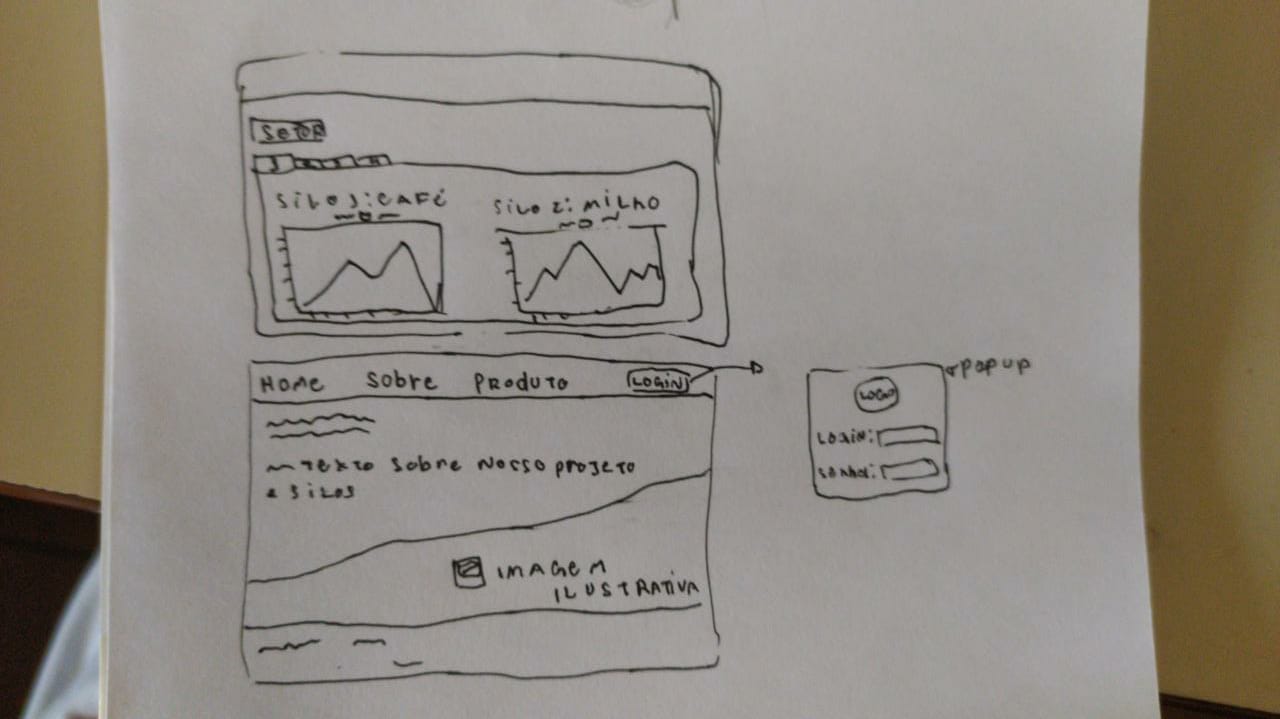 Setor
1 2 3 4
SiLO 1: CAFÉ
SiLO 2: MiLHO
HOME SOBRE PRODUTO LOGiN
TEXTO SOBRE NOSSO PROJETO
e SiLOS
IMAGEM
ILUSTRATIVA
POPUP
LOGO
LOGiN:
SENHA: